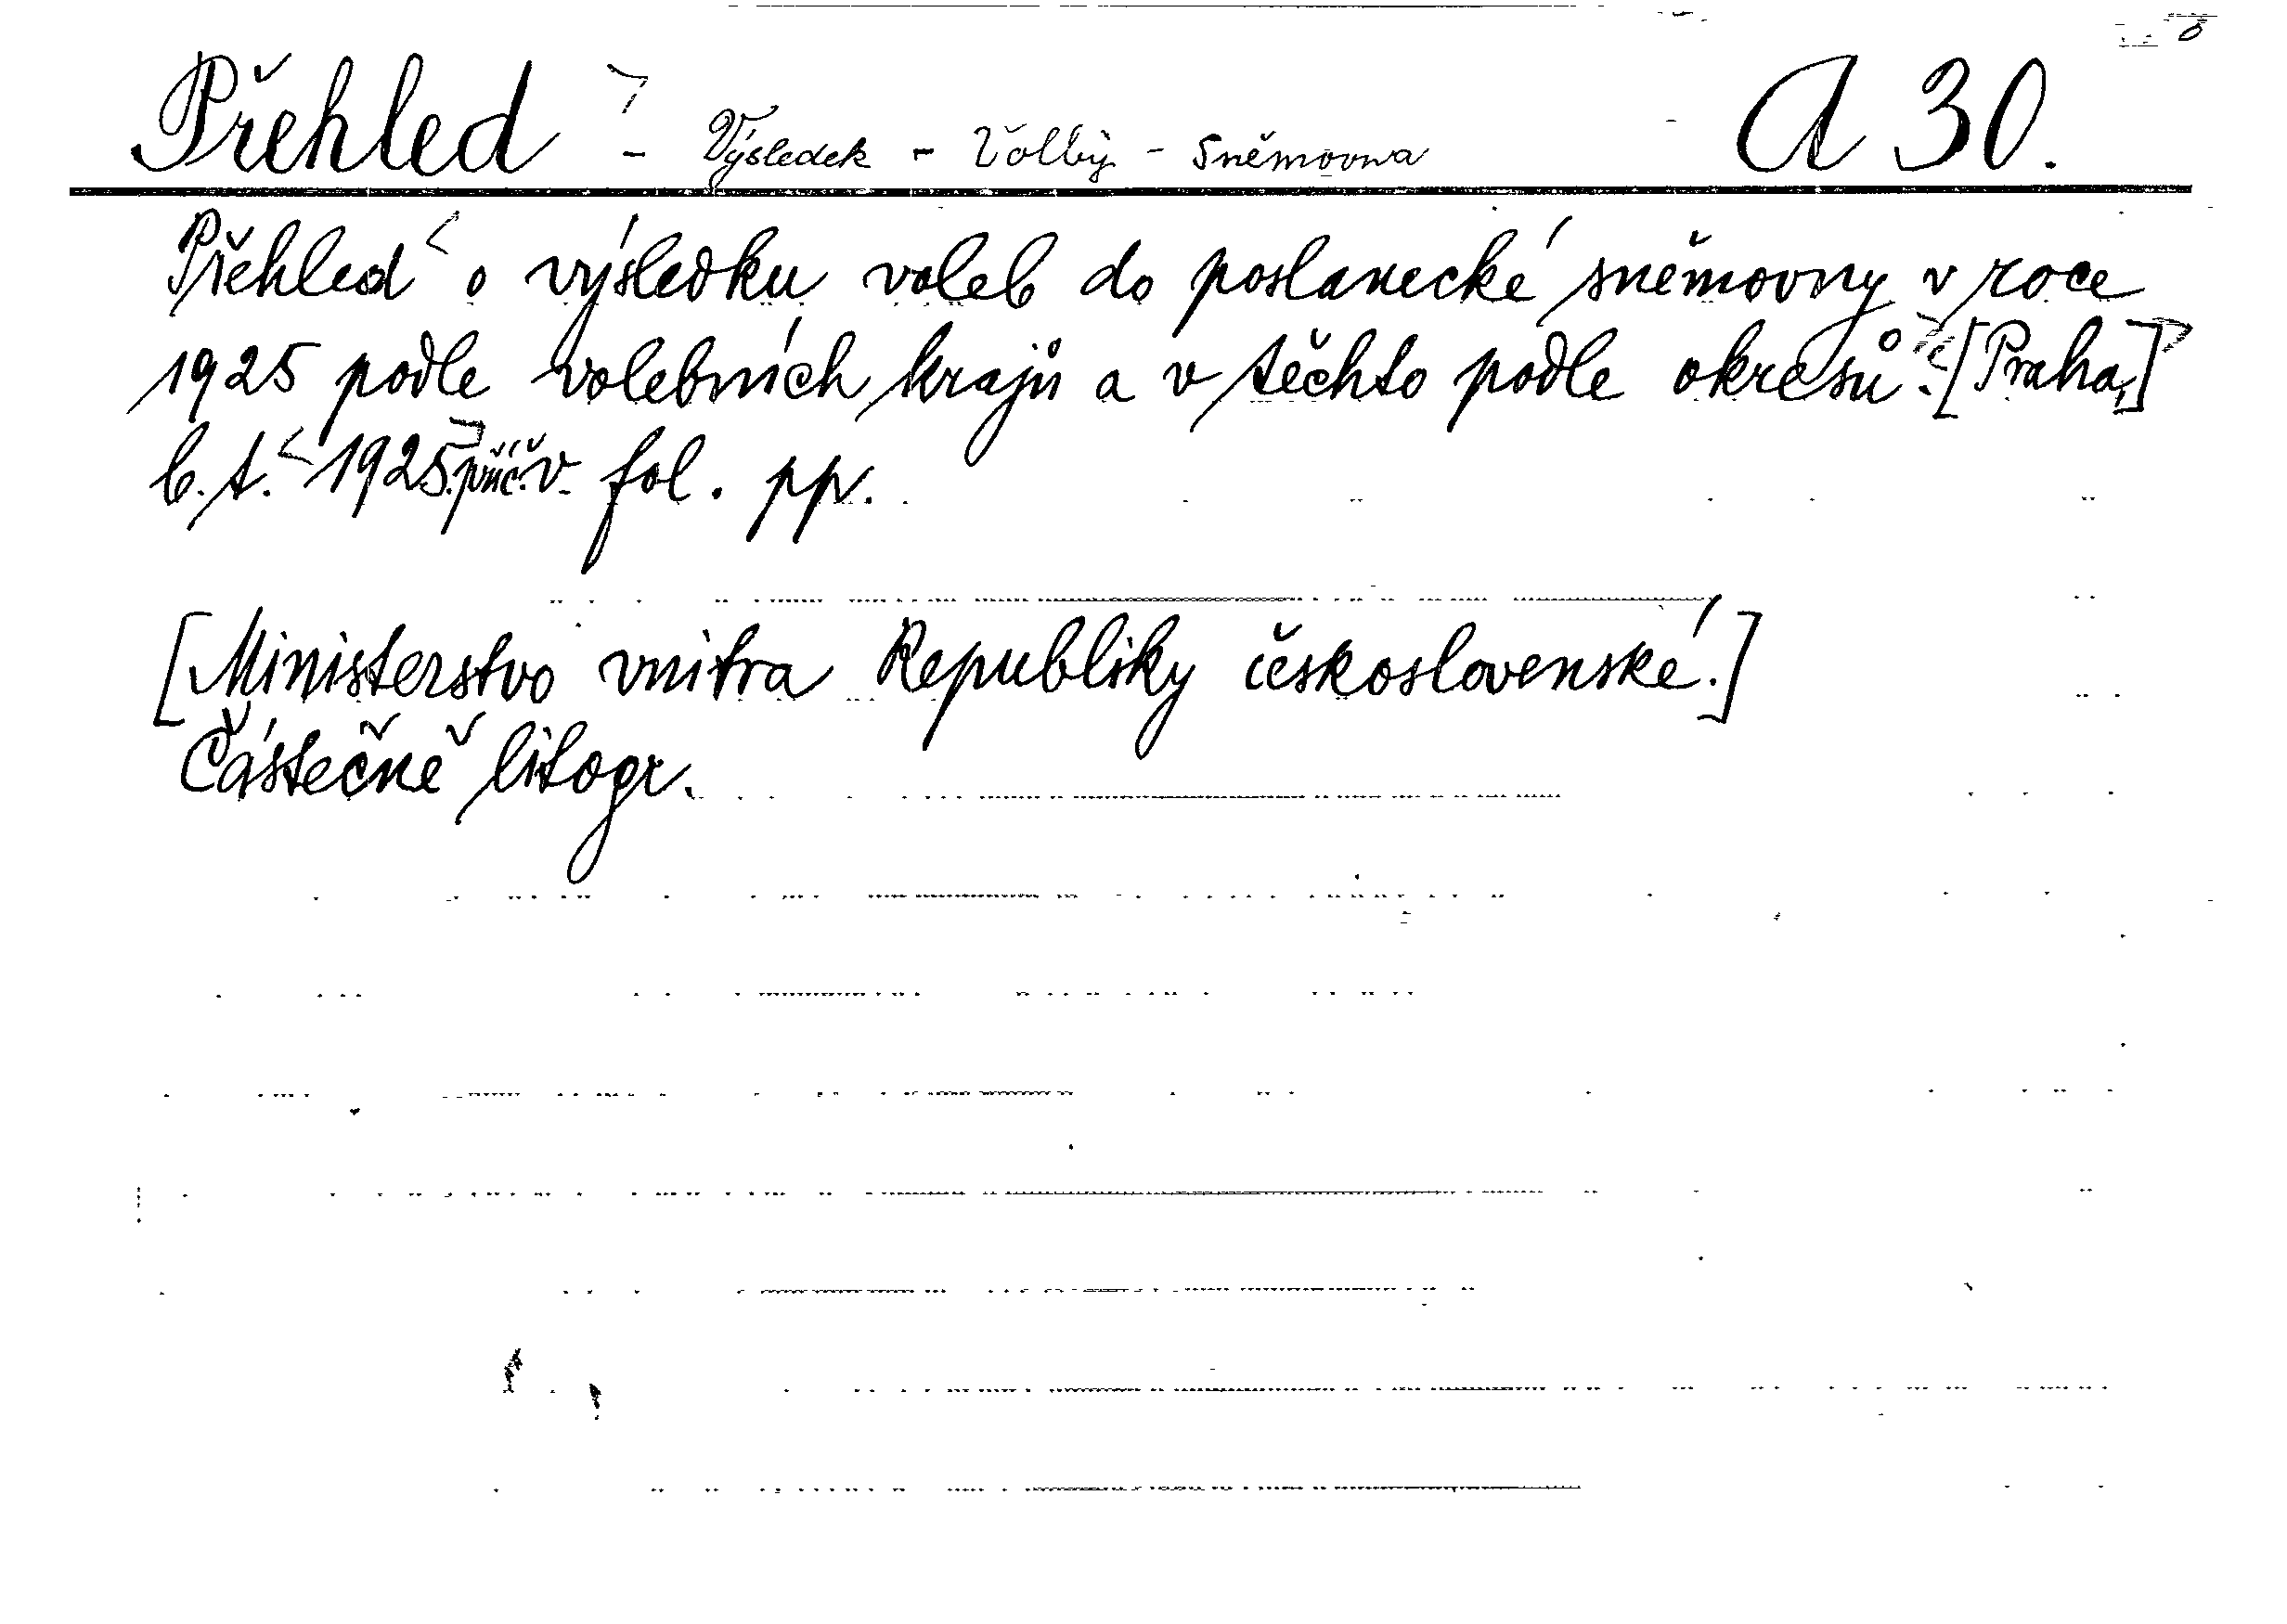 Přehled - Výsledek - Volby - Sněmovna A 30.
Přehled o výsledku voleb do poslanecké sněmovny v roce
1925 podle volebních krajů a v těchto podle okresů. [Praha,]
b. t. 1925. příč. v. fol. pp.
[Ministerstvo vnitra Republiky československé.]
Částečně litogr.